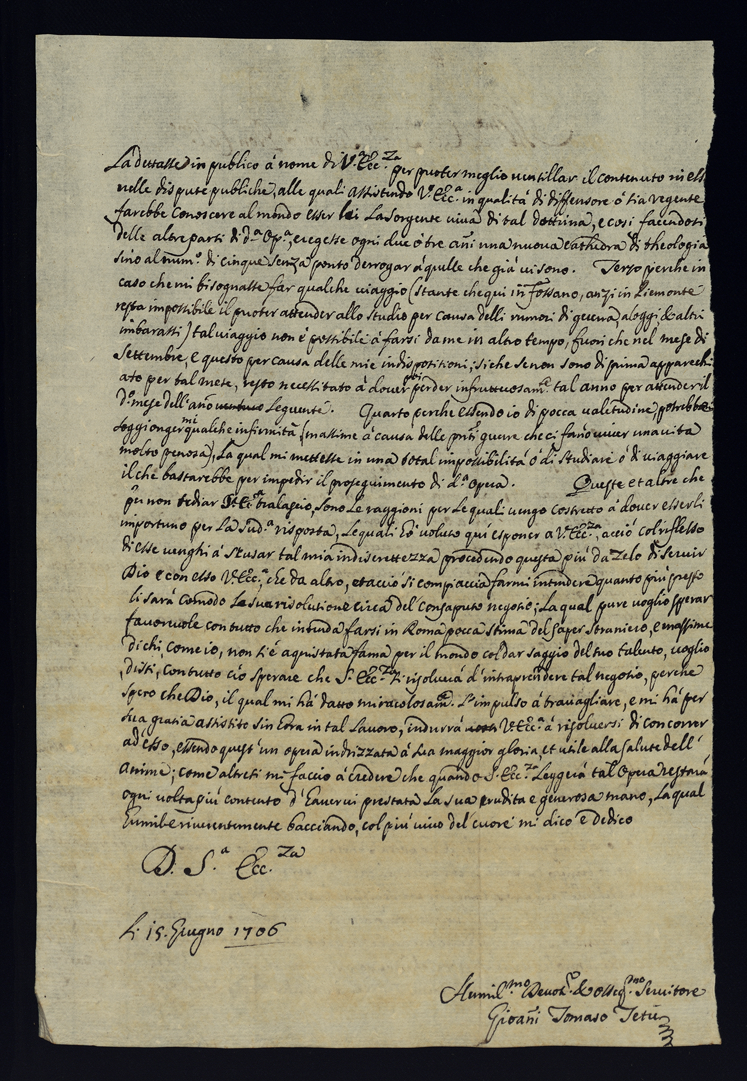 La dettasse in publico à nome di V.ª Ecc.za per puoter meglio ventillar il contenuto in ess
nelle dispute publiche, alle quali assistendo V.ª Ecc.ª in qualità di diffensore ò sia regente
farebbe conoscere al mondo esser lei La sorgente viva di tal dottrina, e così facendosi
delle altre parti di d.ª Op.ª, eregesse ogni due ò tre añi una nuova Cathedra di theologia
sino al num.º di cinque senza ponto derrogar à quelle che già vi sono. Terzo perche in
caso che mi bisognasse far qualche viaggio (stante che qui in Fossano, anzi in Piemonte
resta impossibile il puoter attender allo studio per causa delli rumori di guerra aloggi, & altri
imbarassi) tal viaggio non è possibile à farsi da me in altro tempo, fuori che nel mese di
Settembre, e questo per causa delle mie indispositioni; si che se non sono di prima apparechi
ato per tal mese, resto necessitato à dover poi perder infruttuosam.te tal anno per attender il
d.º mese dell'año seguente. Quarto perche essendo io di pocca valitudine, potrebbe
soggionger mi qualche infirmità (massime à causa delle pñti guerre che ci fano viver una vita
molto penosa), La qual mi mettesse in una total impossibilità ò di studiare ò di viaggiare
il che bastarebbe per impedir il proseguimento di d.ª Opera. Queste et altre che
per non tediar V. Ecc.ª tralascio, sono Le raggioni per Le quali vengo costretto à dover esserli
importuno per La sud.ª risposta, Le quali hò voluto qui esponer à V.ª Ecc.za, acciò col riflesso
di esse venghi à scusar tal mia indiscrettezza procedendo questa più da zelo di servir
Dio e con esso V.ª Ecc.ª, che da altro, et acciò si compiaccia farmi intendere quanto più presto
li sarà comodo La sua risolutione circa del consaputo negotio; La qual pure voglio sperar
favorevole con tutto che intenda farsi in Roma pocca stima del saper straniero, e massime
di chi, come io, non s'è aquistata fama per il mondo col dar saggio del suo talento, voglio
, dissi, con tutto ciò sperare che S. Ecc.za si risolverà d'intraprendere tal negotio, perche
spero che Dio, il qual mi hà datto miracolosam.te L'impulso à travagliare, e mi hà per
sua gratia assistito sin hora in tal Lavoro, indurrà V.ª Ecc.ª à risolversi di concorrer
ad esso, essendo quest'un opera indrizzata à sua maggior gloria, et utile alla salute dell'
anime; come altresì mi faccio à credere che quando S. Ecc.za Leggerà tal Opera restarà
ogni volta più contento d'haverci prestata La sua erudita e generosa mano, La qual
humil e riverentemente bacciando, col più vivo del cuore mi dico e dedico
D. S.ª Ecc.za
Li 15. Giugno 1706
Humil.mo Devot.º & osseq.mo Servitore
Gioañi Tomaso